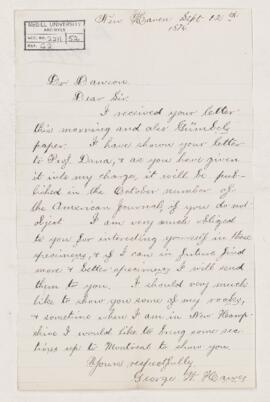 McGILL UNIVERSITY
ARCHIVES
ACC. NO. 2211 / 52
REF. 62
New Haven Sept 12th
1876
Dr Dawson
Dear Sir.
I received your letter
this morning and also Gümbel's
paper. I have shown your letter
to Prof. Dana, & as you have given
it into my charge, it will be pub-
lished in the October number of
the American Journal, if you do not
object. I am very much obliged
to you for interesting yourself in these
specimens, & if I can in future find
more & better specimens I will send
them to you. I should very much
like to show you some of my rocks,
& sometime when I am in New Hamp-
shire I would like to bring some sec-
tions up to Montreal to show you.
Yours respectfully.
George W. Hawes